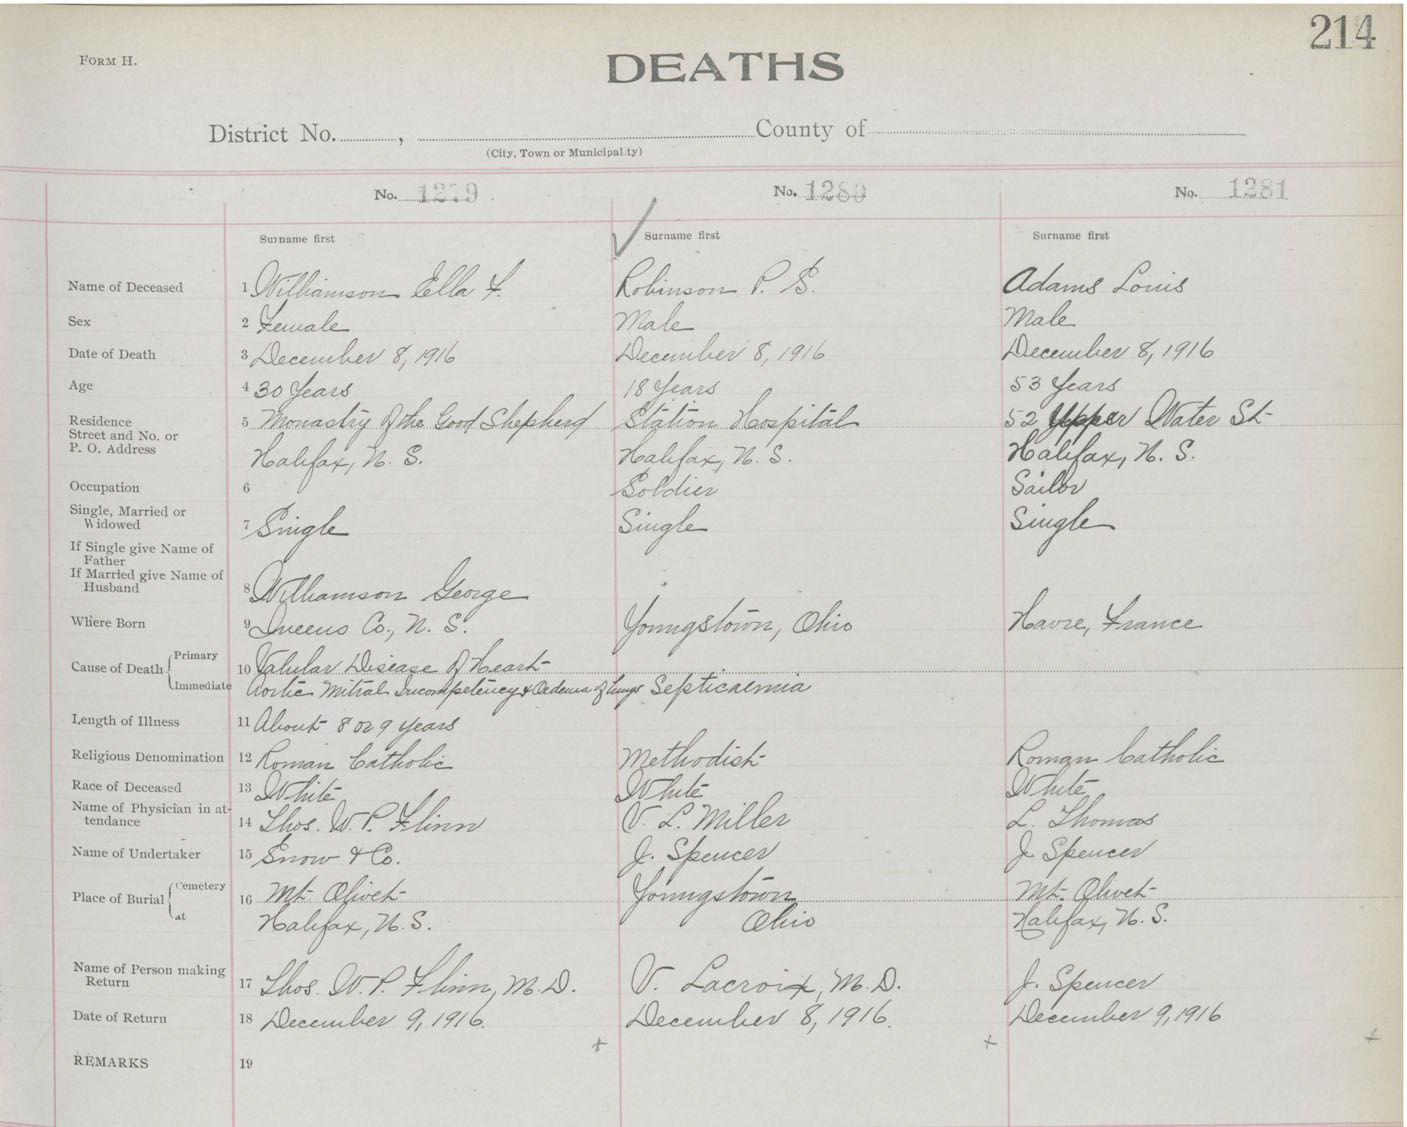 214
FORM H.
DEATHS
District No. , County of
(City, Town or Municipality)
No. 1279 No. 1280 No. 1281
Surname first Surname first Surname first
Name of Deceased 1 Williamson Ella F. Robinson P. S. Adams Louis
Sex 2 Female Male Male
Date of Death 3 December 8, 1916 December 8, 1916 December 8, 1916
Age 4 30 Years 18 Years 53 Years
Residence Street and No. or P. O. Address 5 Monastry of the Good Shepherd Station Hospital 52 Upper Water St
Halifax, N. S. Halifax, N. S. Halifax, N. S.
Occupation 6 Soldier Sailor
Single, Married or Widowed 7 Single Single Single
If Single give Name of Father
If Married give Name of Husband 8 Williamson George
Where Born 9 Queens Co., N. S. Youngstown, Ohio Havre, France
Cause of Death Primary 10 Valular Disease of Heart
Immediate Aortic Mitral Incompetency & Oedema of lungs Septicaemia
Length of Illness 11 About 8 or 9 years
Religious Denomination 12 Roman Catholic Methodist Roman Catholic
Race of Deceased 13 White White White
Name of Physician in attendance 14 Thos. W. P. Flinn V. L. Miller L. Thomas
Name of Undertaker 15 Snow & Co. J. Spencer J Spencer
Place of Burial Cemetery 16 Mt. Olivet Youngstown Mt. Olivet
at Halifax, N. S. Ohio Halifax, N. S.
Name of Person making Return 17 Thos. W. P. Flinn, M. D. V. Lacroix, M. D. J. Spencer
Date of Return 18 December 9, 1916. December 8, 1916. December 9, 1916
REMARKS 19